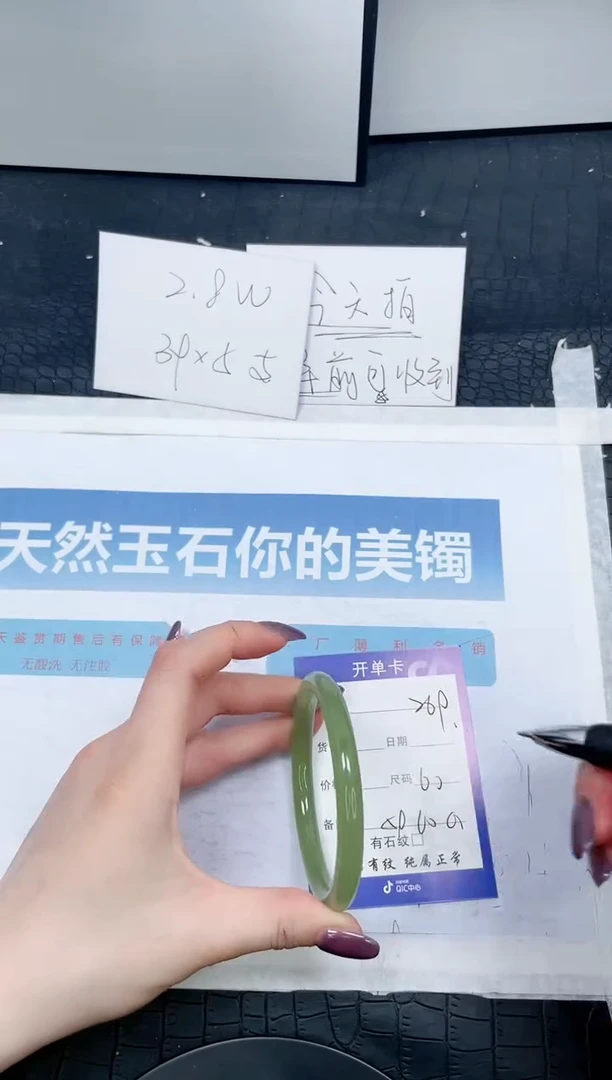 2.8W
今天拍
年前可收到
天然玉石你的美镯
天鉴赏期售后有保
厂薄利多销
无酸洗 无注胶
开单卡
货
日期
价
尺码 60
备
有石纹□
有纹 纯属正常
QIC中心